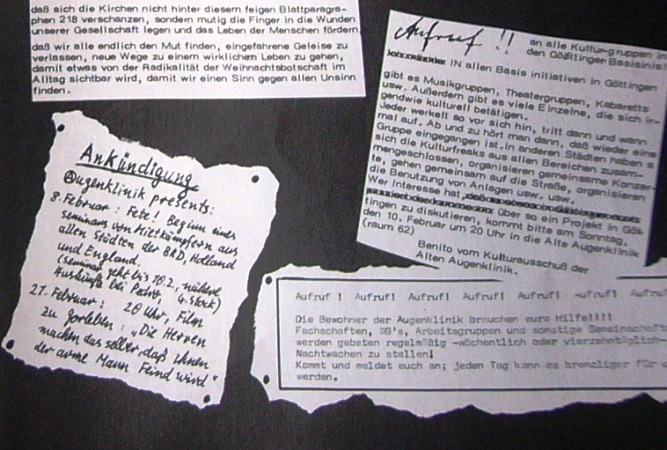 daß sich die Kirchen nicht hinter diesem feigen Blattparagra-
phen 218 verschanzen, sondern mutig die Finger in die Wunden
unserer Gesellschaft legen und das Leben der Menschen fördern,
daß wir alle endlich den Mut finden, eingefahrene Geleise zu
verlassen, neue Wege zu einem wirklichem Leben zu gehen,
damit etwas von der Radikalität der Weihnachtsbotschaft im
Alltag sichtbar wird, damit wir einen Sinn gegen allen Unsinn
finden.
Aufruf!! an alle Kultur-gruppen in
den Göttinger Basisini
IN allen Basis initiativen in Göttingen
gibt es Musikgruppen, Theatergruppen, Kabaretts
usw. Außerdem gibt es viele Einzelne, die sich ir-
gendwie kulturell betätigen.
Jeder werkelt so vor sich hin, tritt dann und wann
mal auf. Ab und zu hört man dann, daß wieder eine
Gruppe eingegangen ist. In anderen Städten haben
sich die Kulturfreaks aus allen Bereichen zusam-
mengeschlossen, organisieren gemeinsame Konzer-
te, gehen gemeinsam auf die Straße, organisieren
die Benutzung von Anlagen usw. usw.
Wer Interesse hat, über so ein Projekt in Göt-
tingen zu diskutieren, kommt bitte am Sonntag,
den 10. Februar um 20 Uhr in die Alte Augenklinik
(raum 62)
Benito vom Kulturausschuß der
Alten Augenklinik.
Ankündigung
Augenklinik presents:
8. Februar: Fete! Beginn eines
seminars von Mitkämpfern aus
allen Städten der BRD, Holland
und England.
(seminar geht bis 10.2., nähere
Auskünfte bei Petro, 4. Stock)
21. Februar: 20 Uhr, Film
zu Gorleben: „Die Herren
machen das selber, daß ihnen
der arme Mann Feind wird"
Aufruf! Aufruf! Aufruf! Aufruf! Aufruf! Aufruf! Aufruf!
Die Bewohner der Augenklinik brauchen eure Hilfe!!!!
Fachschaften, WG's, Arbeitsgruppen und sonstige Gemeinschaf
werden gebeten regelmäßig -wöchentlich oder vierzehntäglich-
Nachtwachen zu stellen!
Kommt und meldet euch an; jeden Tag kann es brenzliger für
werden.